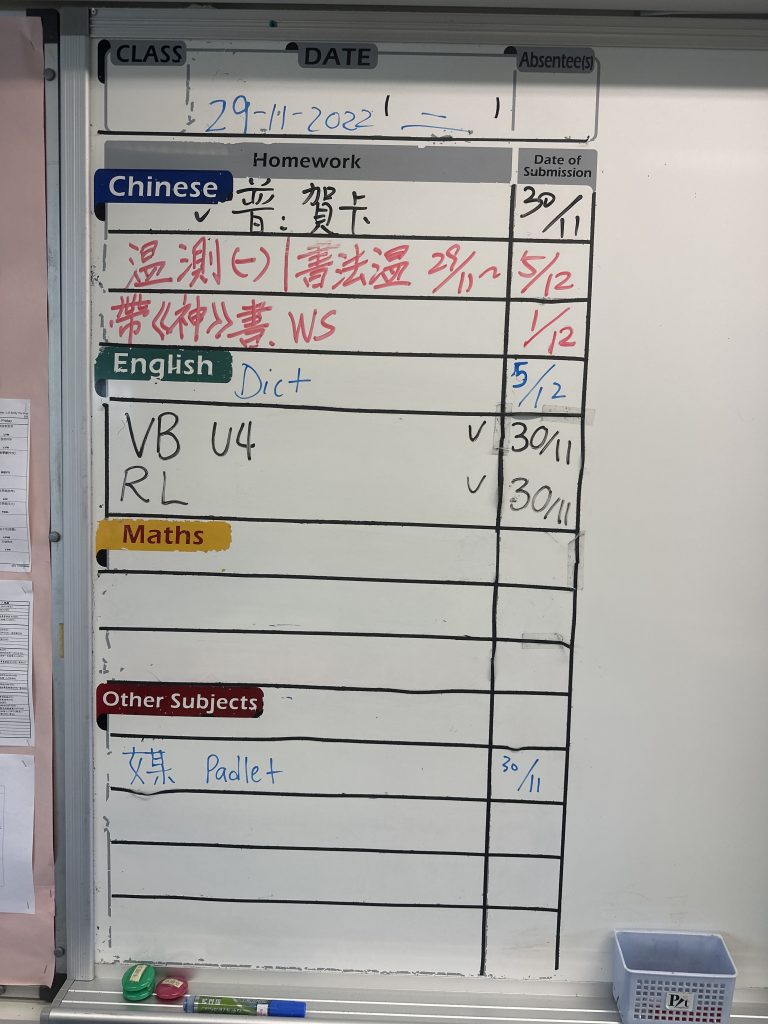 CLASS DATE Absentee(s)
29-11-2022 (二)
Homework Date of Submission
Chinese
✓ 普: 賀卡 30/11
温測(一) | 書法温 29/11~ 5/12
帶《神》書. WS 1/12
English
Dict 5/12
VB U4 ✓ 30/11
RL ✓ 30/11
Maths
Other Subjects
媒 Padlet 30/11